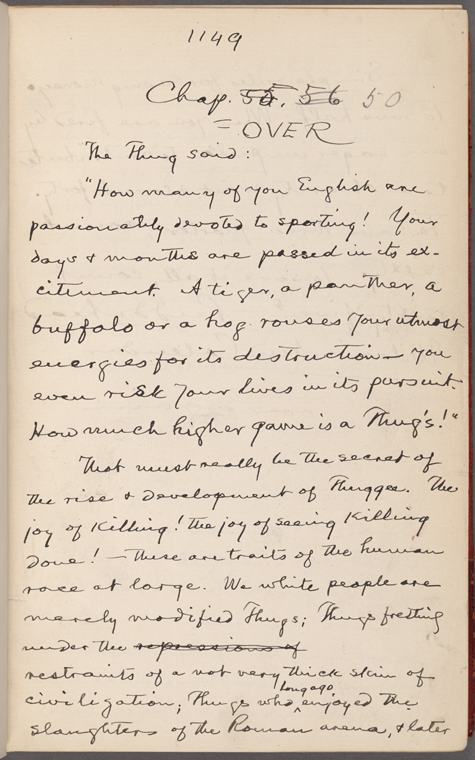 1149
Chap. 54. 56 50
= OVER
The Thug said:
"How many of you English are
passionately devoted to sporting! Your
days & months are passed in its ex-
citement. A tiger, a panther, a
buffalo or a hog rouses your utmost
energies for its destruction — you
even risk your lives in its pursuit.
How much higher game is a Thug's!"
That must really be the secret of
the rise & development of Thuggee. The
joy of killing! the joy of seeing killing
done! — these are traits of the human
race at large. We white people are
merely modified Thugs; Thugs fretting
under the repressions of
restraints of a not very thick skin of
civilization; Thugs who long ago enjoyed the
slaughters of the Roman arena, & later